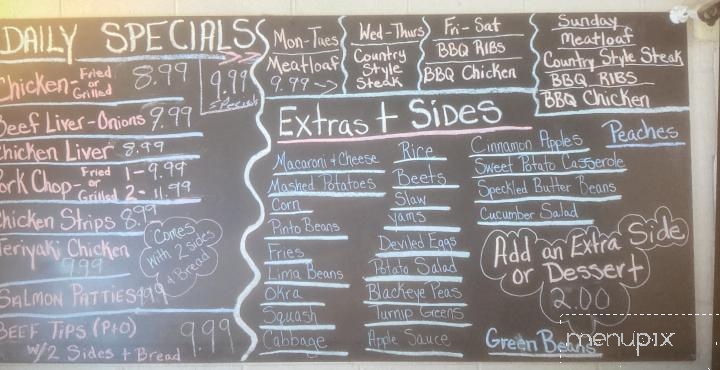 DAILY SPECIALS
Chicken - Fried or Grilled 8.99
9.99
Beef Liver - Onions 9.99
Chicken Liver 8.99
Pork Chop - Fried or Grilled 1 - 9.99
2 - 11.99
Chicken Strips 8.99
Teriyaki Chicken
9.99
Salmon Patties 9.99
Comes
with 2 sides
+ Bread
BEEF TIPS (P+O) 9.99
w/2 Sides + Bread
Mon-Tues
Meatloaf
9.99
Wed-Thurs
Country
Style
Steak
Fri - Sat
BBQ RIBS
BBQ Chicken
Sunday
Meatloaf
Country Style Steak
BBQ RIBS
BBQ Chicken
Extras + Sides
Macaroni + Cheese
Mashed Potatoes
Corn
Pinto Beans
Fries
Lima Beans
Okra
Squash
Cabbage
Rice
Beets
Slaw
yams
Deviled Eggs
Potato Salad
Blackeye Peas
Turnip Greens
Apple Sauce
Cinnamon Apples
Sweet Potato Casserole
Speckled Butter Beans
Cucumber Salad
Peaches
Add an Extra Side
or Dessert
2.00
Green Beans
menupix